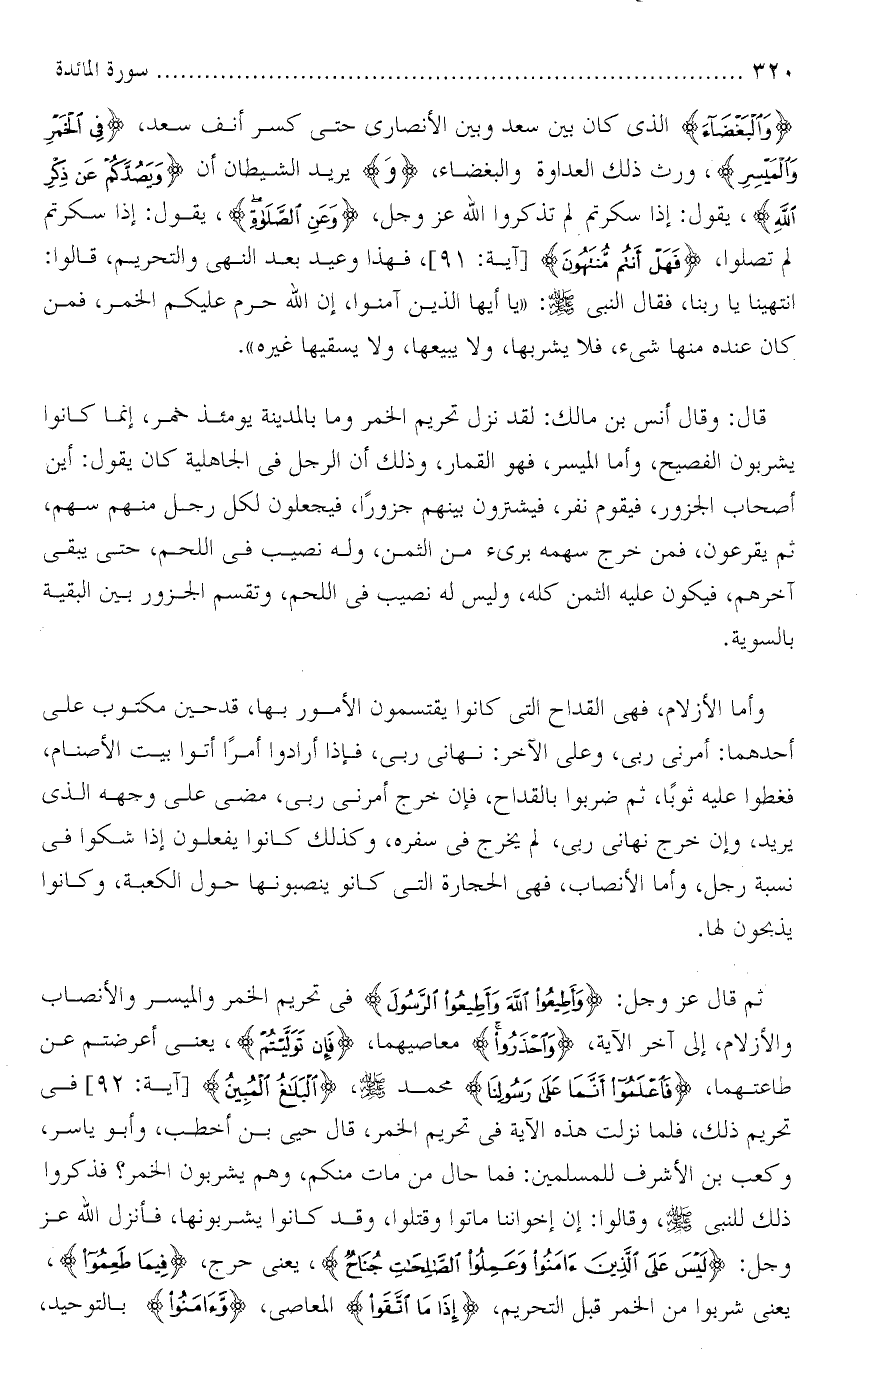 ٣٢٠ ........................................................................ سورة المائدة
﴿وَٱلۡبَغۡضَآءَ﴾ الذى كان بين سعد وبين الأنصارى حتى كسر أنف سعد، ﴿فِي ٱلۡخَمۡرِ
وَٱلۡمَيۡسِرِ﴾، ورث ذلك العداوة والبغضاء، ﴿وَ﴾ يريد الشيطان أن ﴿وَيَصُدَّكُمۡ عَن ذِكۡرِ
ٱللَّهِ﴾، يقول: إذا سكرتم لم تذكروا الله عز وجل، ﴿وَعَنِ ٱلصَّلَوٰةِۖ﴾، يقول: إذا سكرتم
لم تصلوا، ﴿فَهَلۡ أَنتُم مُّنتَهُونَ﴾ [آية: ٩١]، فهذا وعيد بعد النهى والتحريم، قالوا:
انتهينا يا ربنا، فقال النبى ﷺ: «يا أيها الذين آمنوا، إن الله حرم عليكم الخمر، فمن
كان عنده منها شىء، فلا يشربها، ولا يبيعها، ولا يسقيها غيره».
قال: وقال أنس بن مالك: لقد نزل تحريم الخمر وما بالمدينة يومئذ خمر، إنما كانوا
يشربون الفصيح، وأما الميسر، فهو القمار، وذلك أن الرجل فى الجاهلية كان يقول: أين
أصحاب الجزور، فيقوم نفر، فيشترون بينهم جزورًا، فيجعلون لكل رجل منهم سهم،
ثم يقرعون، فمن خرج سهمه برىء من الثمن، وله نصيب فى اللحم، حتى يبقى
آخرهم، فيكون عليه الثمن كله، وليس له نصيب فى اللحم، وتقسم الجزور بين البقية
بالسوية.
وأما الأزلام، فهى القداح التى كانوا يقتسمون الأمور بها، قدحين مكتوب على
أحدهما: أمرنى ربى، وعلى الآخر: نهانى ربى، فإذا أرادوا أمرًا أتوا بيت الأصنام،
فغطوا عليه ثوبًا، ثم ضربوا بالقداح، فإن خرج أمرنى ربى، مضى على وجهه الذى
يريد، وإن خرج نهانى ربى، لم يخرج فى سفره، وكذلك كانوا يفعلون إذا شكوا فى
نسبة رجل، وأما الأنصاب، فهى الحجارة التى كانو ينصبونها حول الكعبة، وكانوا
يذبحون لها.
ثم قال عز وجل: ﴿وَأَطِيعُواْ ٱللَّهَ وَأَطِيعُواْ ٱلرَّسُولَ﴾ فى تحريم الخمر والميسر والأنصاب
والأزلام، إلى آخر الآية، ﴿وَٱحۡذَرُواْۚ﴾ معاصيهما، ﴿فَإِن تَوَلَّيۡتُمۡ﴾، يعنى أعرضتم عن
طاعتهما، ﴿فَٱعۡلَمُوٓاْ أَنَّمَا عَلَىٰ رَسُولِنَا﴾ محمد ﷺ، ﴿ٱلۡبَلَٰغُ ٱلۡمُبِينُ﴾ [آية: ٩٢] فى
تحريم ذلك، فلما نزلت هذه الآية فى تحريم الخمر، قال حيى بن أخطب، وأبو ياسر،
وكعب بن الأشرف للمسلمين: فما حال من مات منكم، وهم يشربون الخمر؟ فذكروا
ذلك للنبى ﷺ، وقالوا: إن إخواننا ماتوا وقتلوا، وقد كانوا يشربونها، فأنزل الله عز
وجل: ﴿لَيۡسَ عَلَى ٱلَّذِينَ ءَامَنُواْ وَعَمِلُواْ ٱلصَّٰلِحَٰتِ جُنَاحٞ﴾، يعنى حرج، ﴿فِيمَا طَعِمُوٓاْ﴾،
يعنى شربوا من الخمر قبل التحريم، ﴿إِذَا مَا ٱتَّقَواْ﴾ المعاصى، ﴿وَّءَامَنُواْ﴾ بالتوحيد،